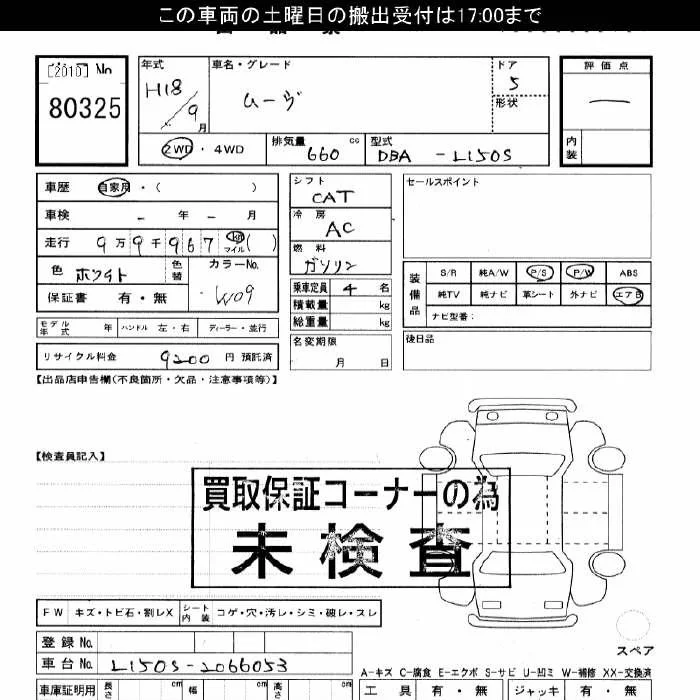 この車両の土曜日の搬出受付は17:00まで
[2010] No
80325
年式 車名・グレード ドア 評価点
H18/9月 ムーヴ 5 —
形状
2WD・4WD 排気量 660 cc 型式 DBA - L150S 内装
車歴 自家用・( )
車検 - 年 - 月
走行 9万9千967 km マイル ( )
色 ホワイト 色替 カラーNo. W09
保証書 有・無
モデル年式 年 ハンドル 左・右 ディーラー・並行
リサイクル料金 9200 円 預託済
シフト CAT
冷房 AC
燃料 ガソリン
乗車定員 4 名
積載量 kg
総重量 kg
名変期限
月 日
セールスポイント
装備品 S/R 純A/W P/S P/W ABS
純TV 純ナビ 革シート 外ナビ エアB
ナビ型番:
後日品
【出品店申告欄(不良箇所・欠品・注意事項等)】
【検査員記入】
買取保証コーナーの為
未検査
FW キズ・トビ石・割レX シート内装 コゲ・穴・汚レ・シミ・破レ・スレ
登録No.
車台No. L150S-2066053
スペア
A-キズ C-腐食 E-エクボ S-サビ U-凹ミ W-補修 XX-交換済
車庫証明用 長さ cm 幅 cm 高さ cm 工具 有・無 ジャッキ 有・無